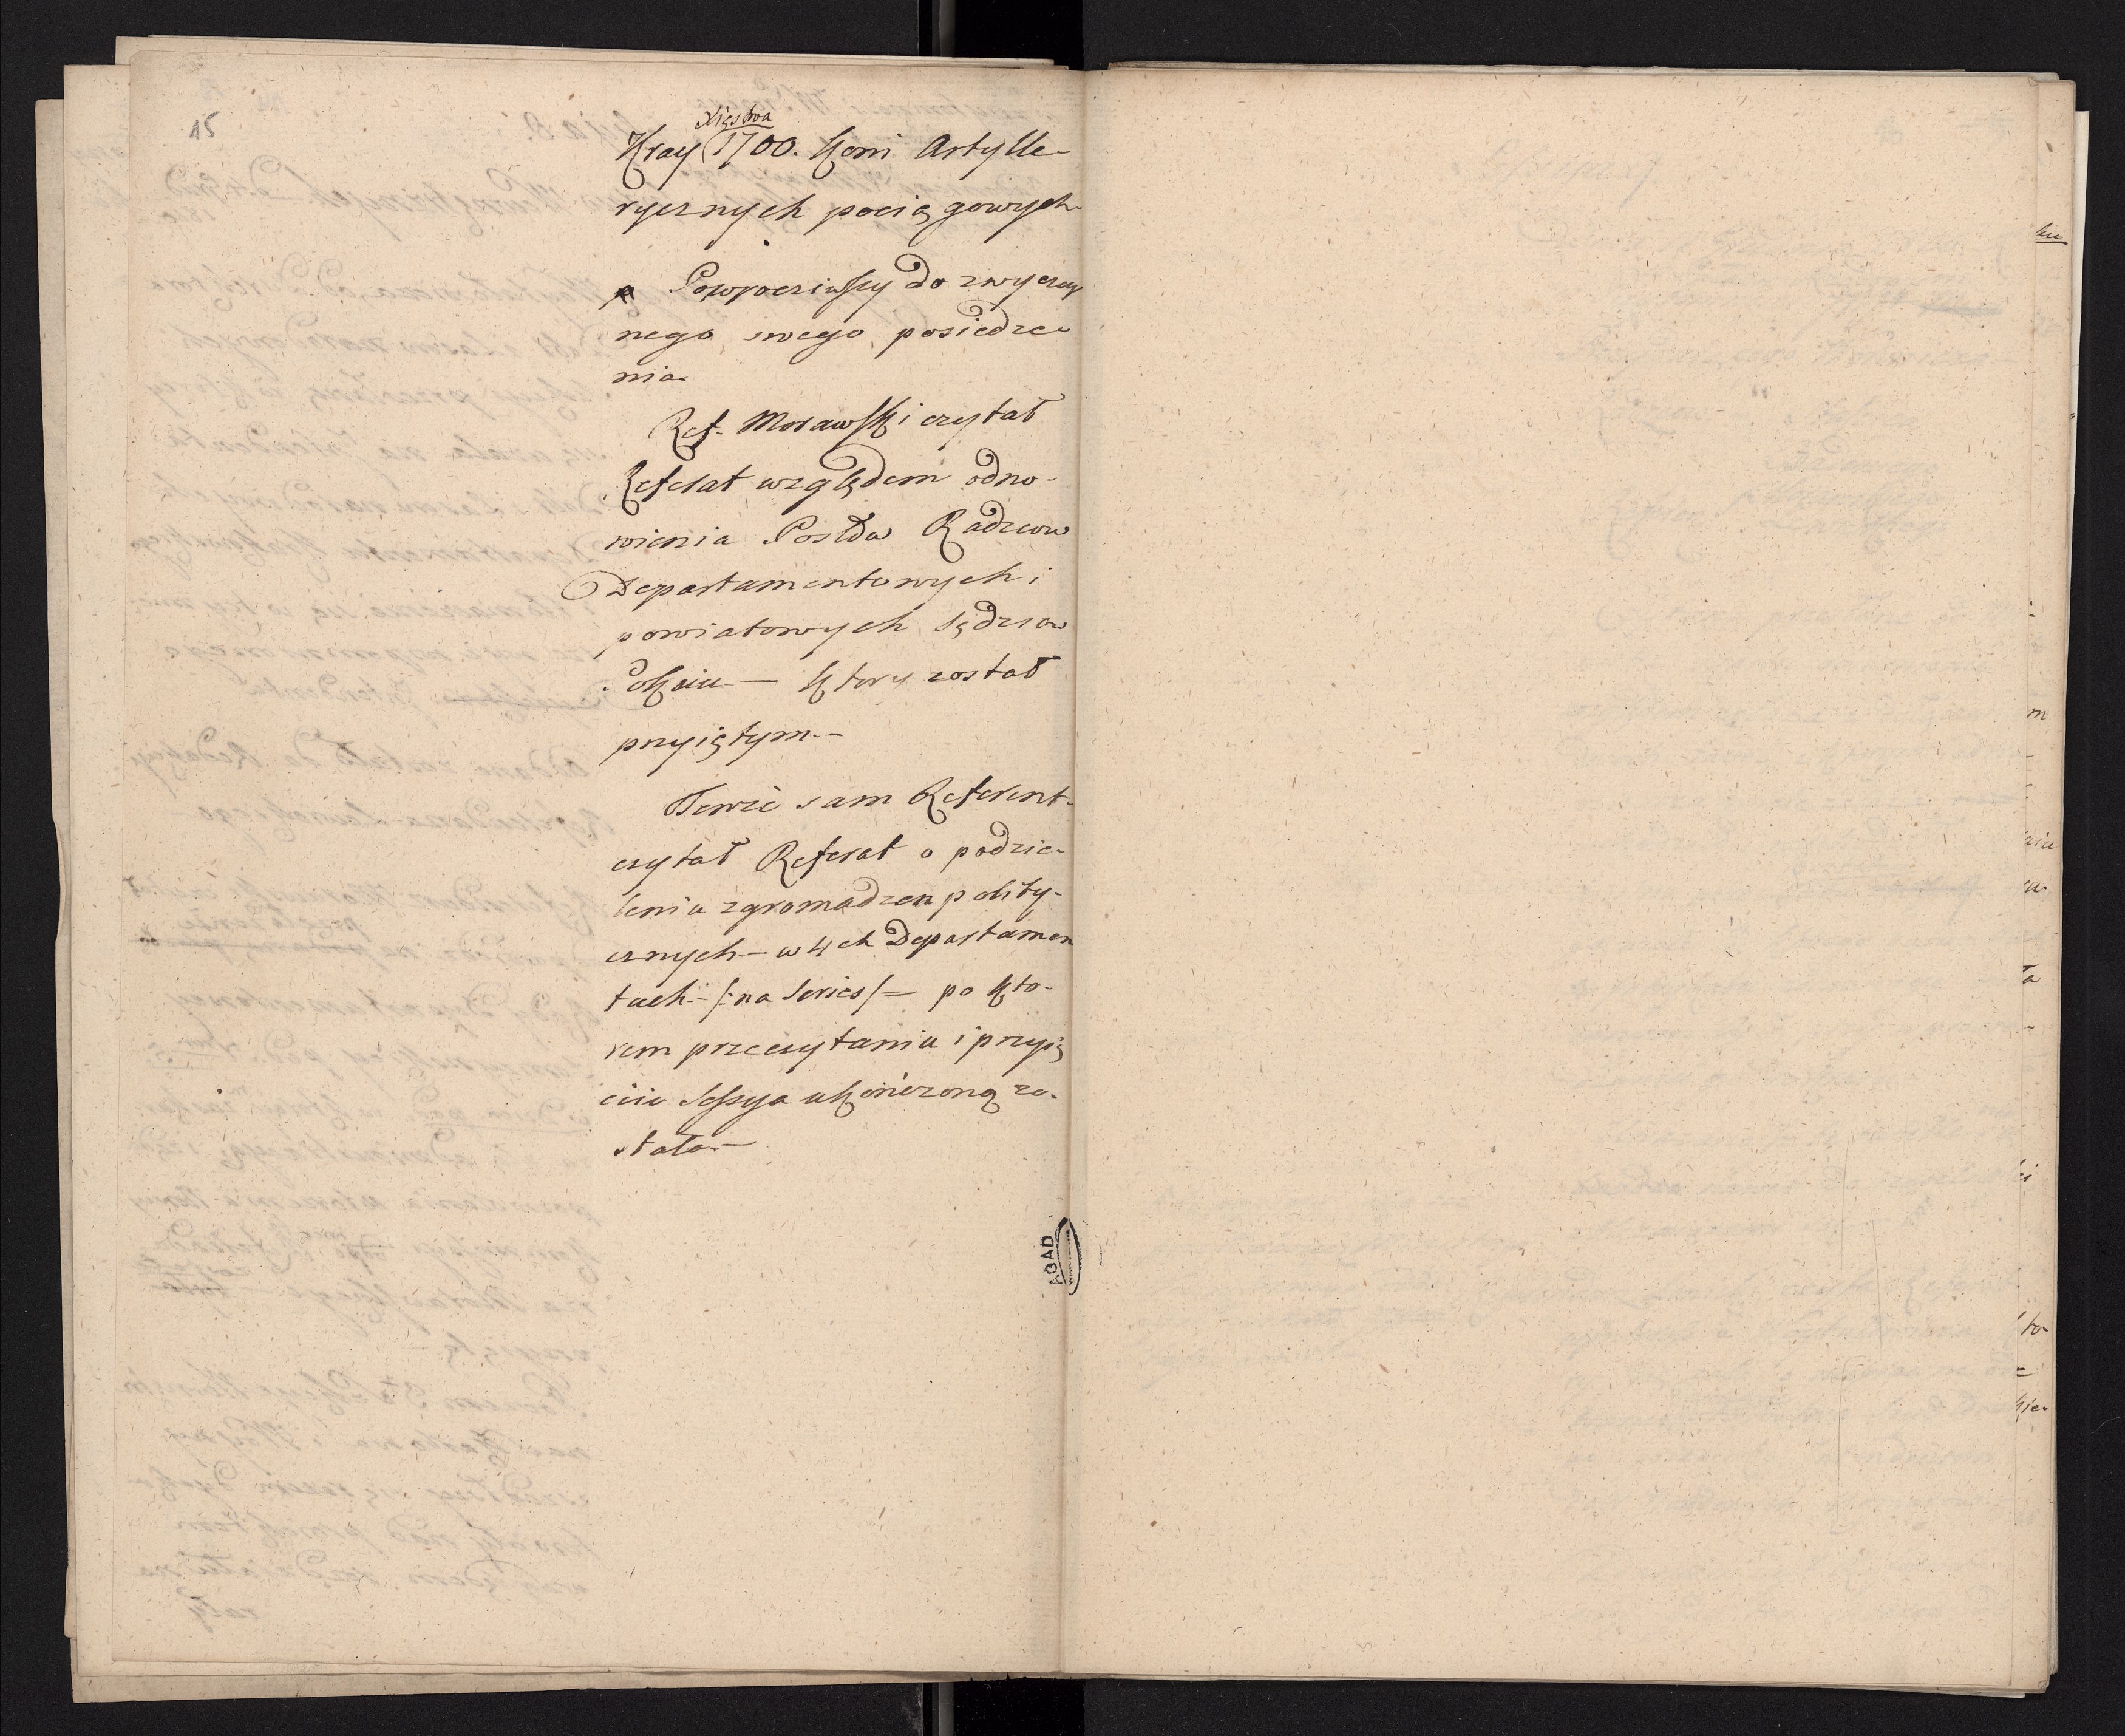 15
Xięstwa
Kray 1700. koni Artylle-
rycznych pociągowych
Powrociwszy do zwyczay
nego swego posiedze-
nia.
Ref. Morawski czytał
Referat względem odno-
wienia Radzców
Departamentowych i
powiatowych Sędziów
Pokoiu — ktory został
przyiętym. -
Tenże sam Referent
czytał Referat o podzie-
leniu zgromadzen polity-
cznych - w 4ch Departamen
tach - /: na Series/ = po kto-
rem przeczytaniu i przyię
ciu Sessya ukończoną zo-
stała -
AGAD